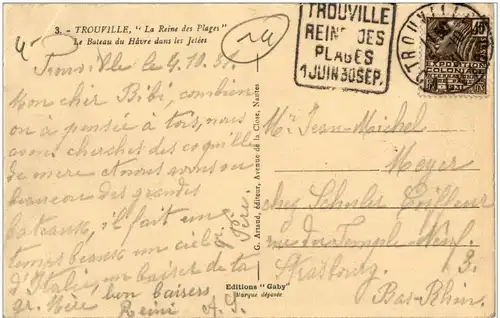 3. - TROUVILLE, "La Reine des Plages"
Le Bateau du Hâvre dans les Jetées
TROUVILLE
REINE DES
PLAGES
1 JUIN 30 SEP.
TROUVILLE
Trouville le 9.10.31.
Mon cher Bibi, combien
on a pensée à toi, nous
avons cherches des coquille
de mere et nous avons vu
beaucou des grandes
bateaux, il fait un
temps beaux un ciel
d'Italie, un baiser de ta
gr. Mère
gr. Père.
bon baisers
Reini A. J.
G. Artaud, éditeur, Avenue de la Close, Nantes
Editions "Gaby"
Marque déposée
Mr Jean-Michel
Meyer
chez Schuler Coiffeur
rue du Temple Neuf.
Strasbourg. 3.
Bas-Rhin.